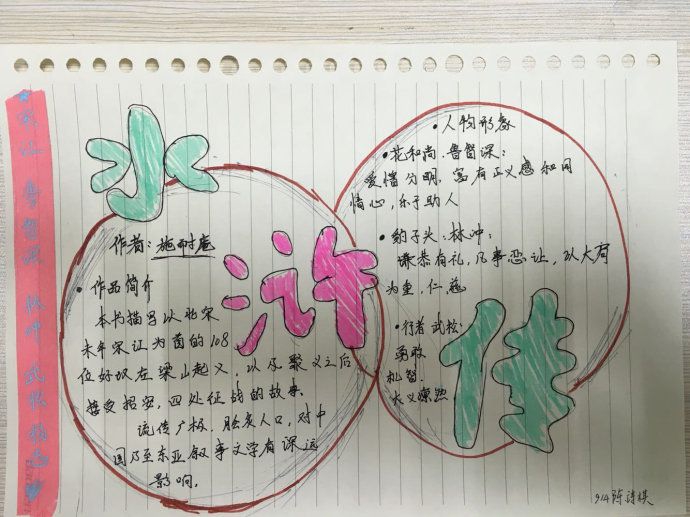 宋江 鲁智深 林冲 武松
水
浒
传
作者:施耐庵
•作品简介
本书描写以北宋
末年宋江为首的108
位好汉在梁山起义,以及聚义之后
接受招安,四处征战的故事。
流传广极,脍炙人口,对中
国乃至东亚叙事文学有深远
影响。
•人物形象
•花和尚·鲁智深:
爱憎分明,富有正义感和同
情心,乐于助人
•豹子头·林冲:
谦恭有礼,凡事忍让,以大局
为重,仁慈
•行者 武松:
勇敢
机智
大义凛然
914陈诗琪